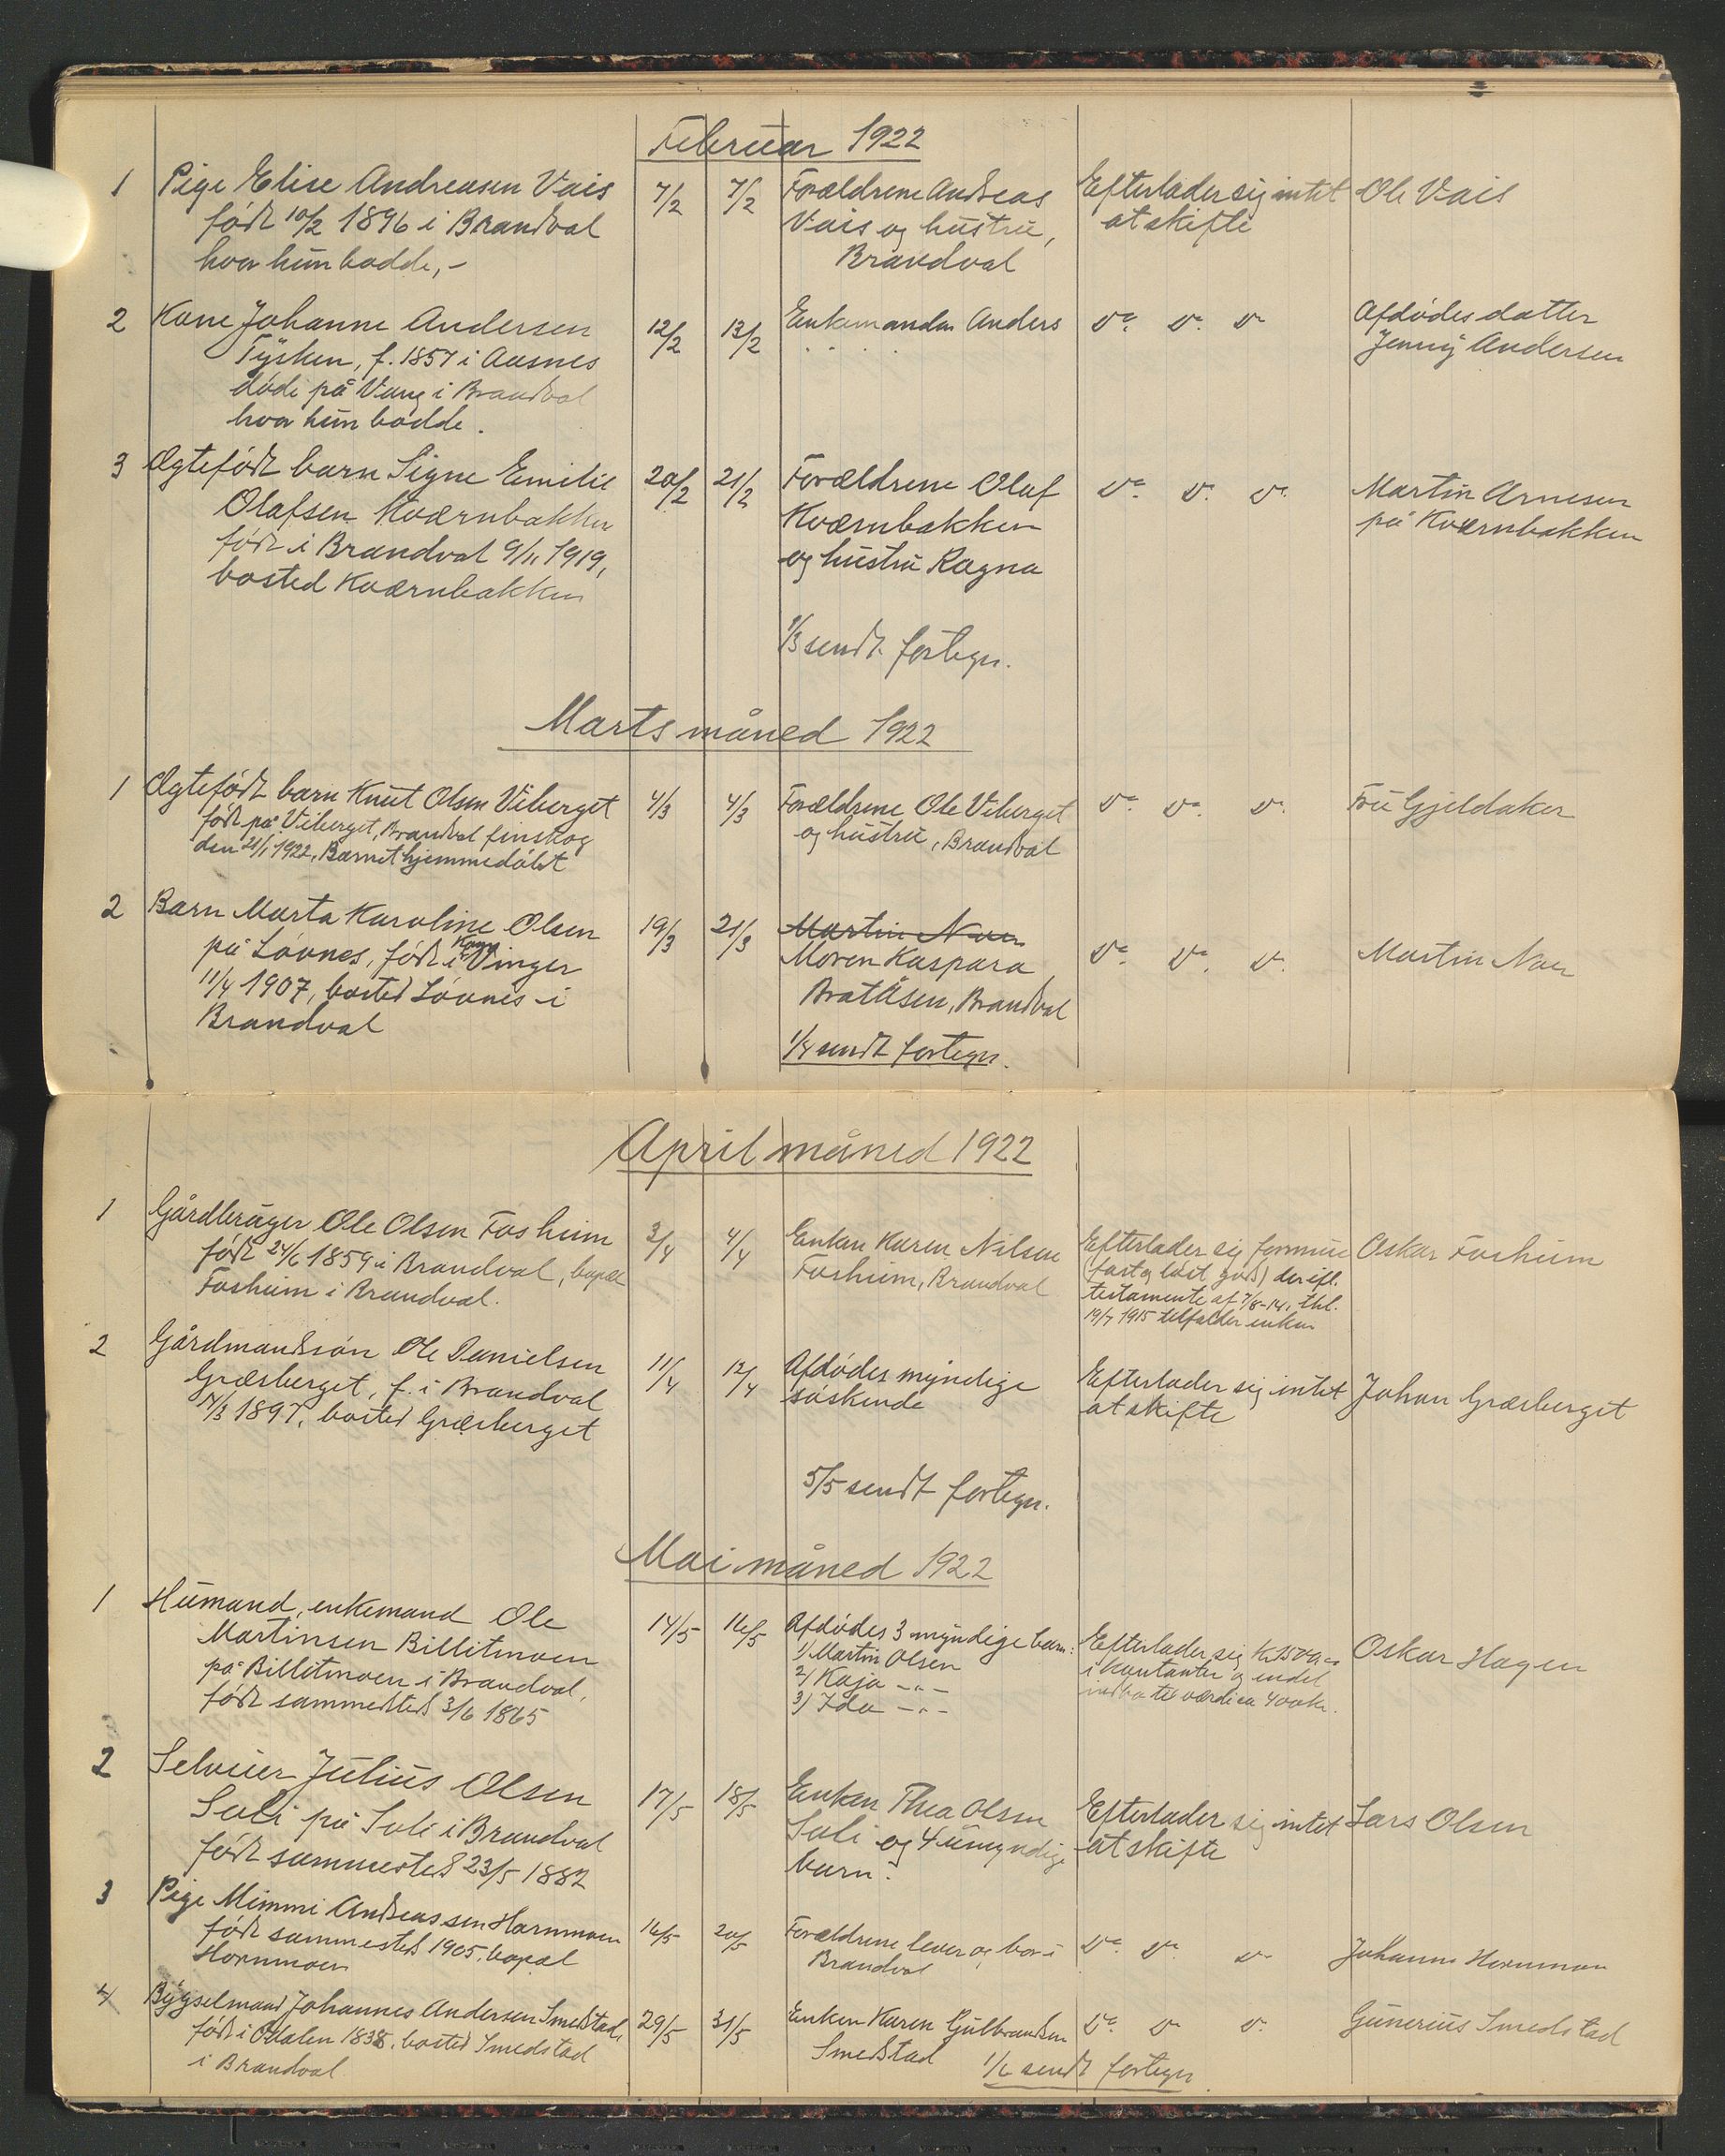 Februar 1922
1 Pige Elise Andreasen Vais 7/2 7/2 Forældrene Andreas Efterlader sig intet Ole Vais
født 10/2 1896 i Brandval Vais og hustru, at skifte
hvor hun bodde,- Brandval
2 Kone Johanne Andersen 12/2 13/2 Enkemanden Anders Do. Do. Do Afdødes datter
Tysken, f. 1857 i Aasnes " " " Jenny Andersen
døde på Vang i Brandval
hvor hun bodde.
3 Ægtefødt barn Signe Emilie 20/2 21/2 Forældrene Olaf Do. Do. Do. Martin Arnesen
Olafsen Kværnbakken Kværnbakken på Kværnbakken
født i Brandval 9/11 1919, og hustru Ragna
bosted Kværnbakken
1/3 sendt fortegn.
Marts måned 1922
1 Ægtefødt barn Knut Olsen Viberget 4/3 4/3 Forældrene Ole Viberget Do. Do. Do. Fru Gjeldaker
født på Viberget, Brandval finskog og hustru, Brandval
den 21/1 1922, Barnet hjemmedøbt
2 Barn Marta Karoline Olsen 19/3 21/3 Martin Noer Do. Do. Do. Martin Noer
på Løvnes, født i Kongsvinger Moren Kaspara
11/4 1907, bosted Løvnes i Bratåsen, Brandval
Brandval
1/4 sendt fortegn.
April måned 1922
1 Gårdbruger Ole Olsen Fosheim 3/4 4/4 Enken Karen Nilsen Efterlader sig formue Oskar Fosheim
født 24/6 1859 i Brandval, bopæl Fosheim, Brandval (fast og løst gods) der ifl.
Fosheim i Brandval. testamente af 7/8-14, thl.
19/7 1915 tilfalder enken
2 Gårdmandssøn Ole Danielsen 11/4 12/4 Afdødes myndige Efterlader sig intet Johan Græsberget
Græsberget, f. i Brandval søskende at skifte
1897, bosted Græsberget
5/5 sendt fortegn.
Mai måned 1922
1 Husmand, enkemand Ole 14/5 16/5 Afdødes 3 myndige barn: Efterlader sig Oskar Hagen
Martinsen Billitmoen 1) Martin Olsen i kontanter og endel
på Billitmoen i Brandval, 2) Kaja -"- indbo til værdi ca 400 kr.
født sammesteds 3/6 1865 3) Ida -"-
2 Selveier Julius Olsen 17/5 18/5 Enken Thea Olsen Efterlader sig intet Lars Olsen
Soli på Soli i Brandval Soli og 4 umyndige at skifte
født sammested 23/5 1882 barn.
3 Pige Mimmi Andreassen Hornmoen 16/5 20/5 Forældrene lever og bor i Do. Do. Do Johannes Hornmoen
født sammested 1905, bopæl Brandval
Hornmoen
4 Bygselmand Johannes Andersen Smedstad, 29/5 31/5 Enken Karen Gulbrandsen Do. Do Do. Gunerius Smedstad
født i Odalen 1838, bosted Smedstad Smedstad
i Brandval 1/6 sendt fortegn.